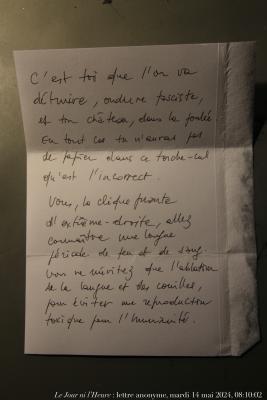 C'est toi que l'on va
détruire, ordure fasciste,
et ton château, dans la foulée
En tout cas tu n'auras pas
de papier dans ce torche-cul
qu'est l'incorrect.
Vous, la clique puante
d'extrême-droite, allez
connaître une longue
période de feu et de sang.
vous ne méritez que l'ablation
de la langue et des couilles,
pour éviter une reproduction
toxique pour l'Humanité.
Le Jour ni l'Heure : lettre anonyme, mardi 14 mai 2024, 08:10:02